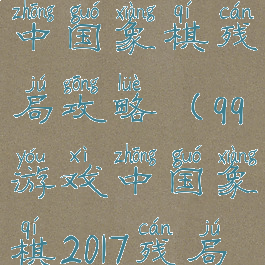 zhōng guó xiàng qí cán
中国象棋残
jú gōng lüè
局攻略（qq
yóu xì zhōng guó xiàng
游戏中国象
qí cán jú
棋2017残局